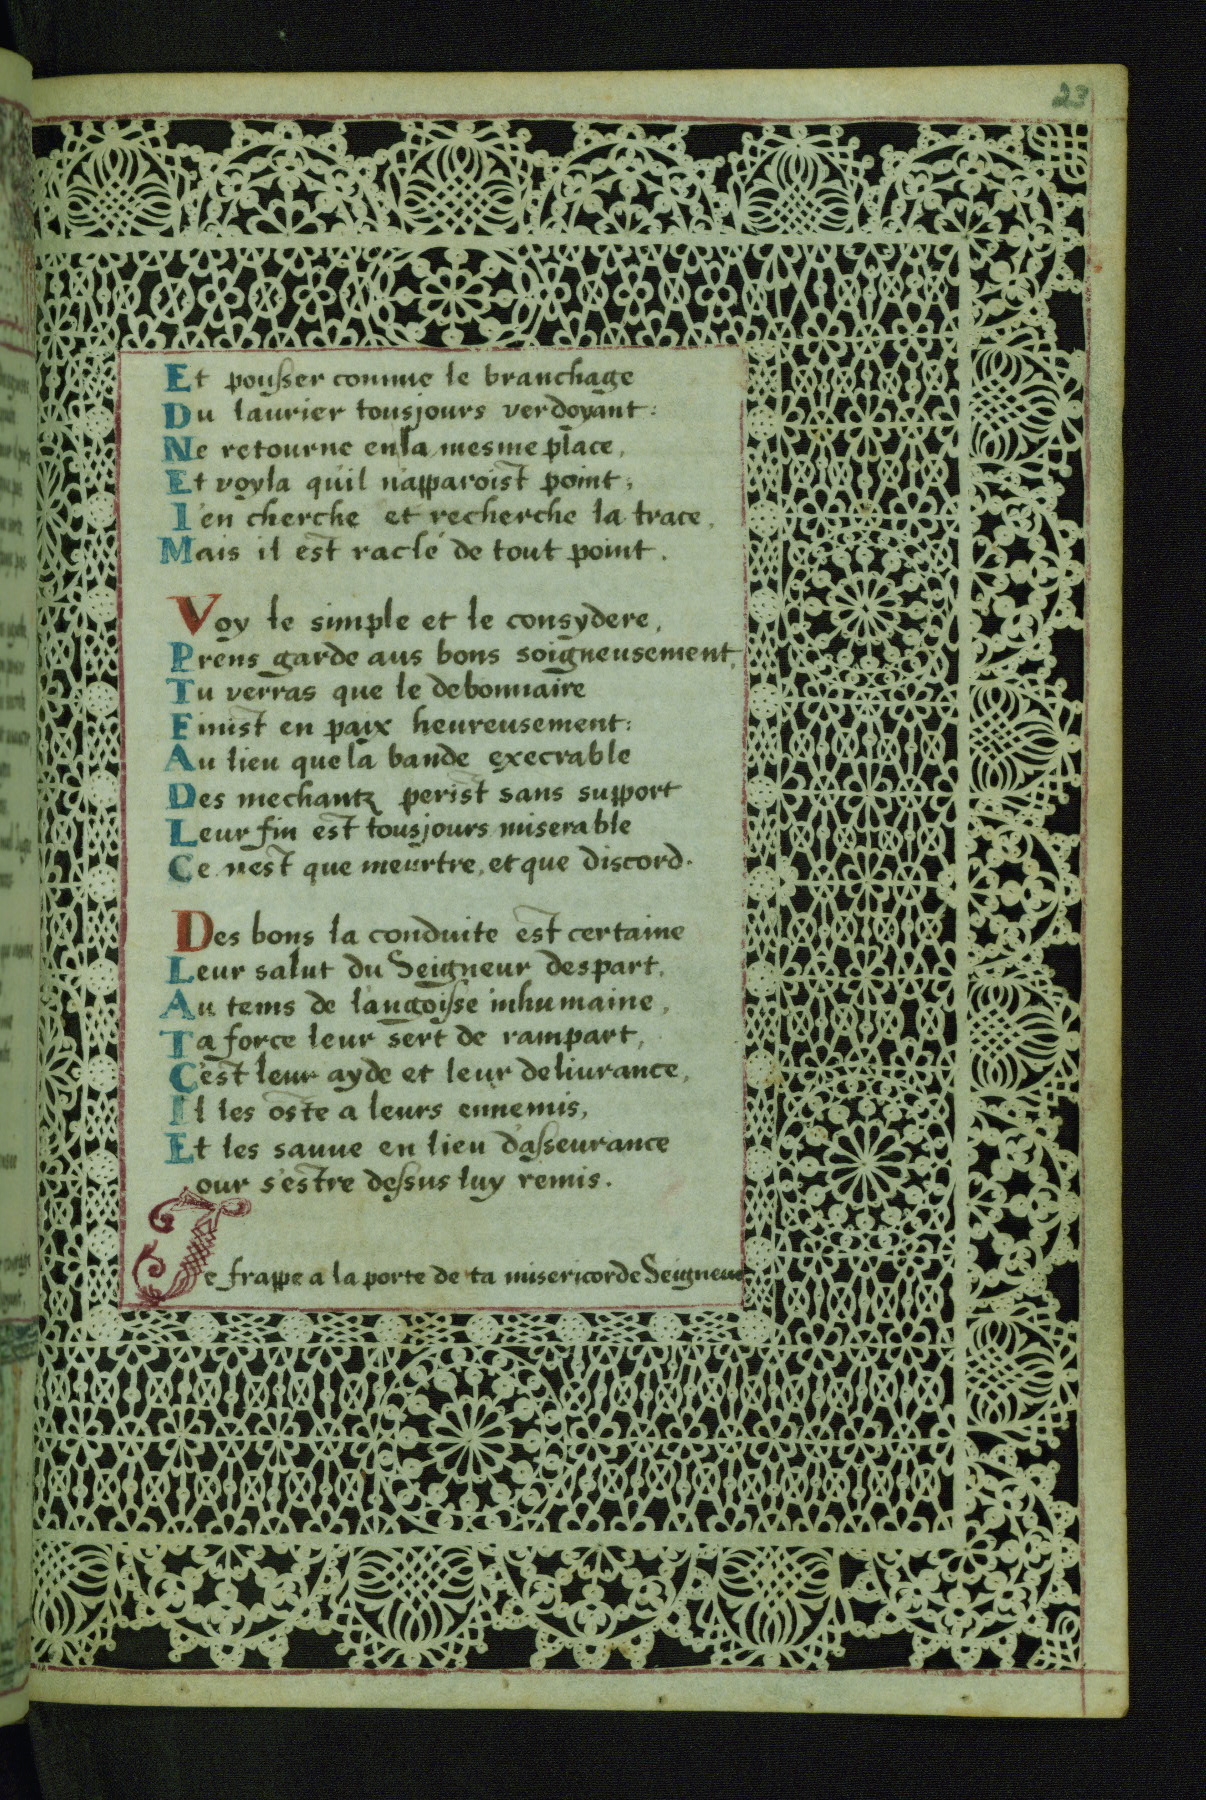 23
Et pousser comme le branchage
Du laurier tousjours verdoyant:
Ne retourne en la mesme place,
Et voyla qu'il n'apparoist point;
I'en cherche et recherche la trace,
Mais il est raclé de tout point.
Voy le simple et le consydere,
Prens garde aus bons soigneusement,
Tu verras que le debonnaire
Finist en paix heureusement:
Au lieu que la bande execrable
Des mechantz perist sans support
Leur fin est tousjours miserable
Ce n'est que meurtre, et que discord.
Des bons la conduite est certaine
Leur salut du Seigneur despart,
Au tems de l'angoisse inhumaine,
Ta force leur sert de rampart,
C'est leur ayde et leur deliurance,
Il les oste a leurs ennemis,
Et les sauue en lieu d'asseurance
our s'estre dessus luy remis.
Je frappe a la porte de ta misericorde Seigneur